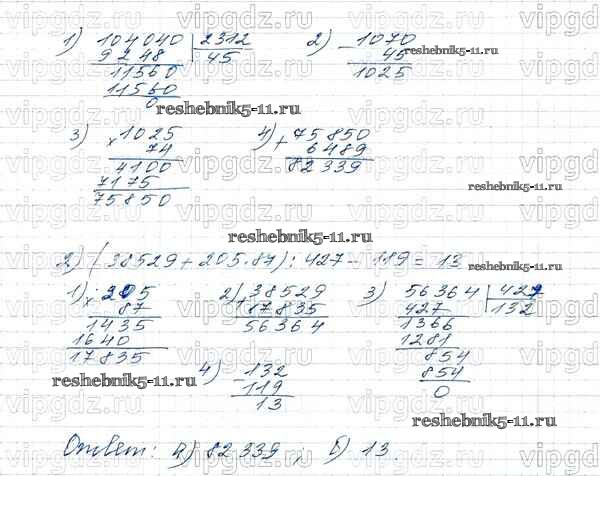 1) 104040 | 2312 2) - 1070
9248 45 45
11560 1025
11560
0
3) × 1025 4) + 75850
74 6489
4100 82339
7175
75850
2) (38529 + 205·87) : 427 - 119 = 13
1) × 205 2) + 38529 3) 56364 | 427
87 17835 427 132
1435 56364 1366
1640 1281
17835 854
4) - 132 854
119 0
13
Ответ: а) 82339 ; б) 13.
reshebnik5-11.ru
vipgdz.ru